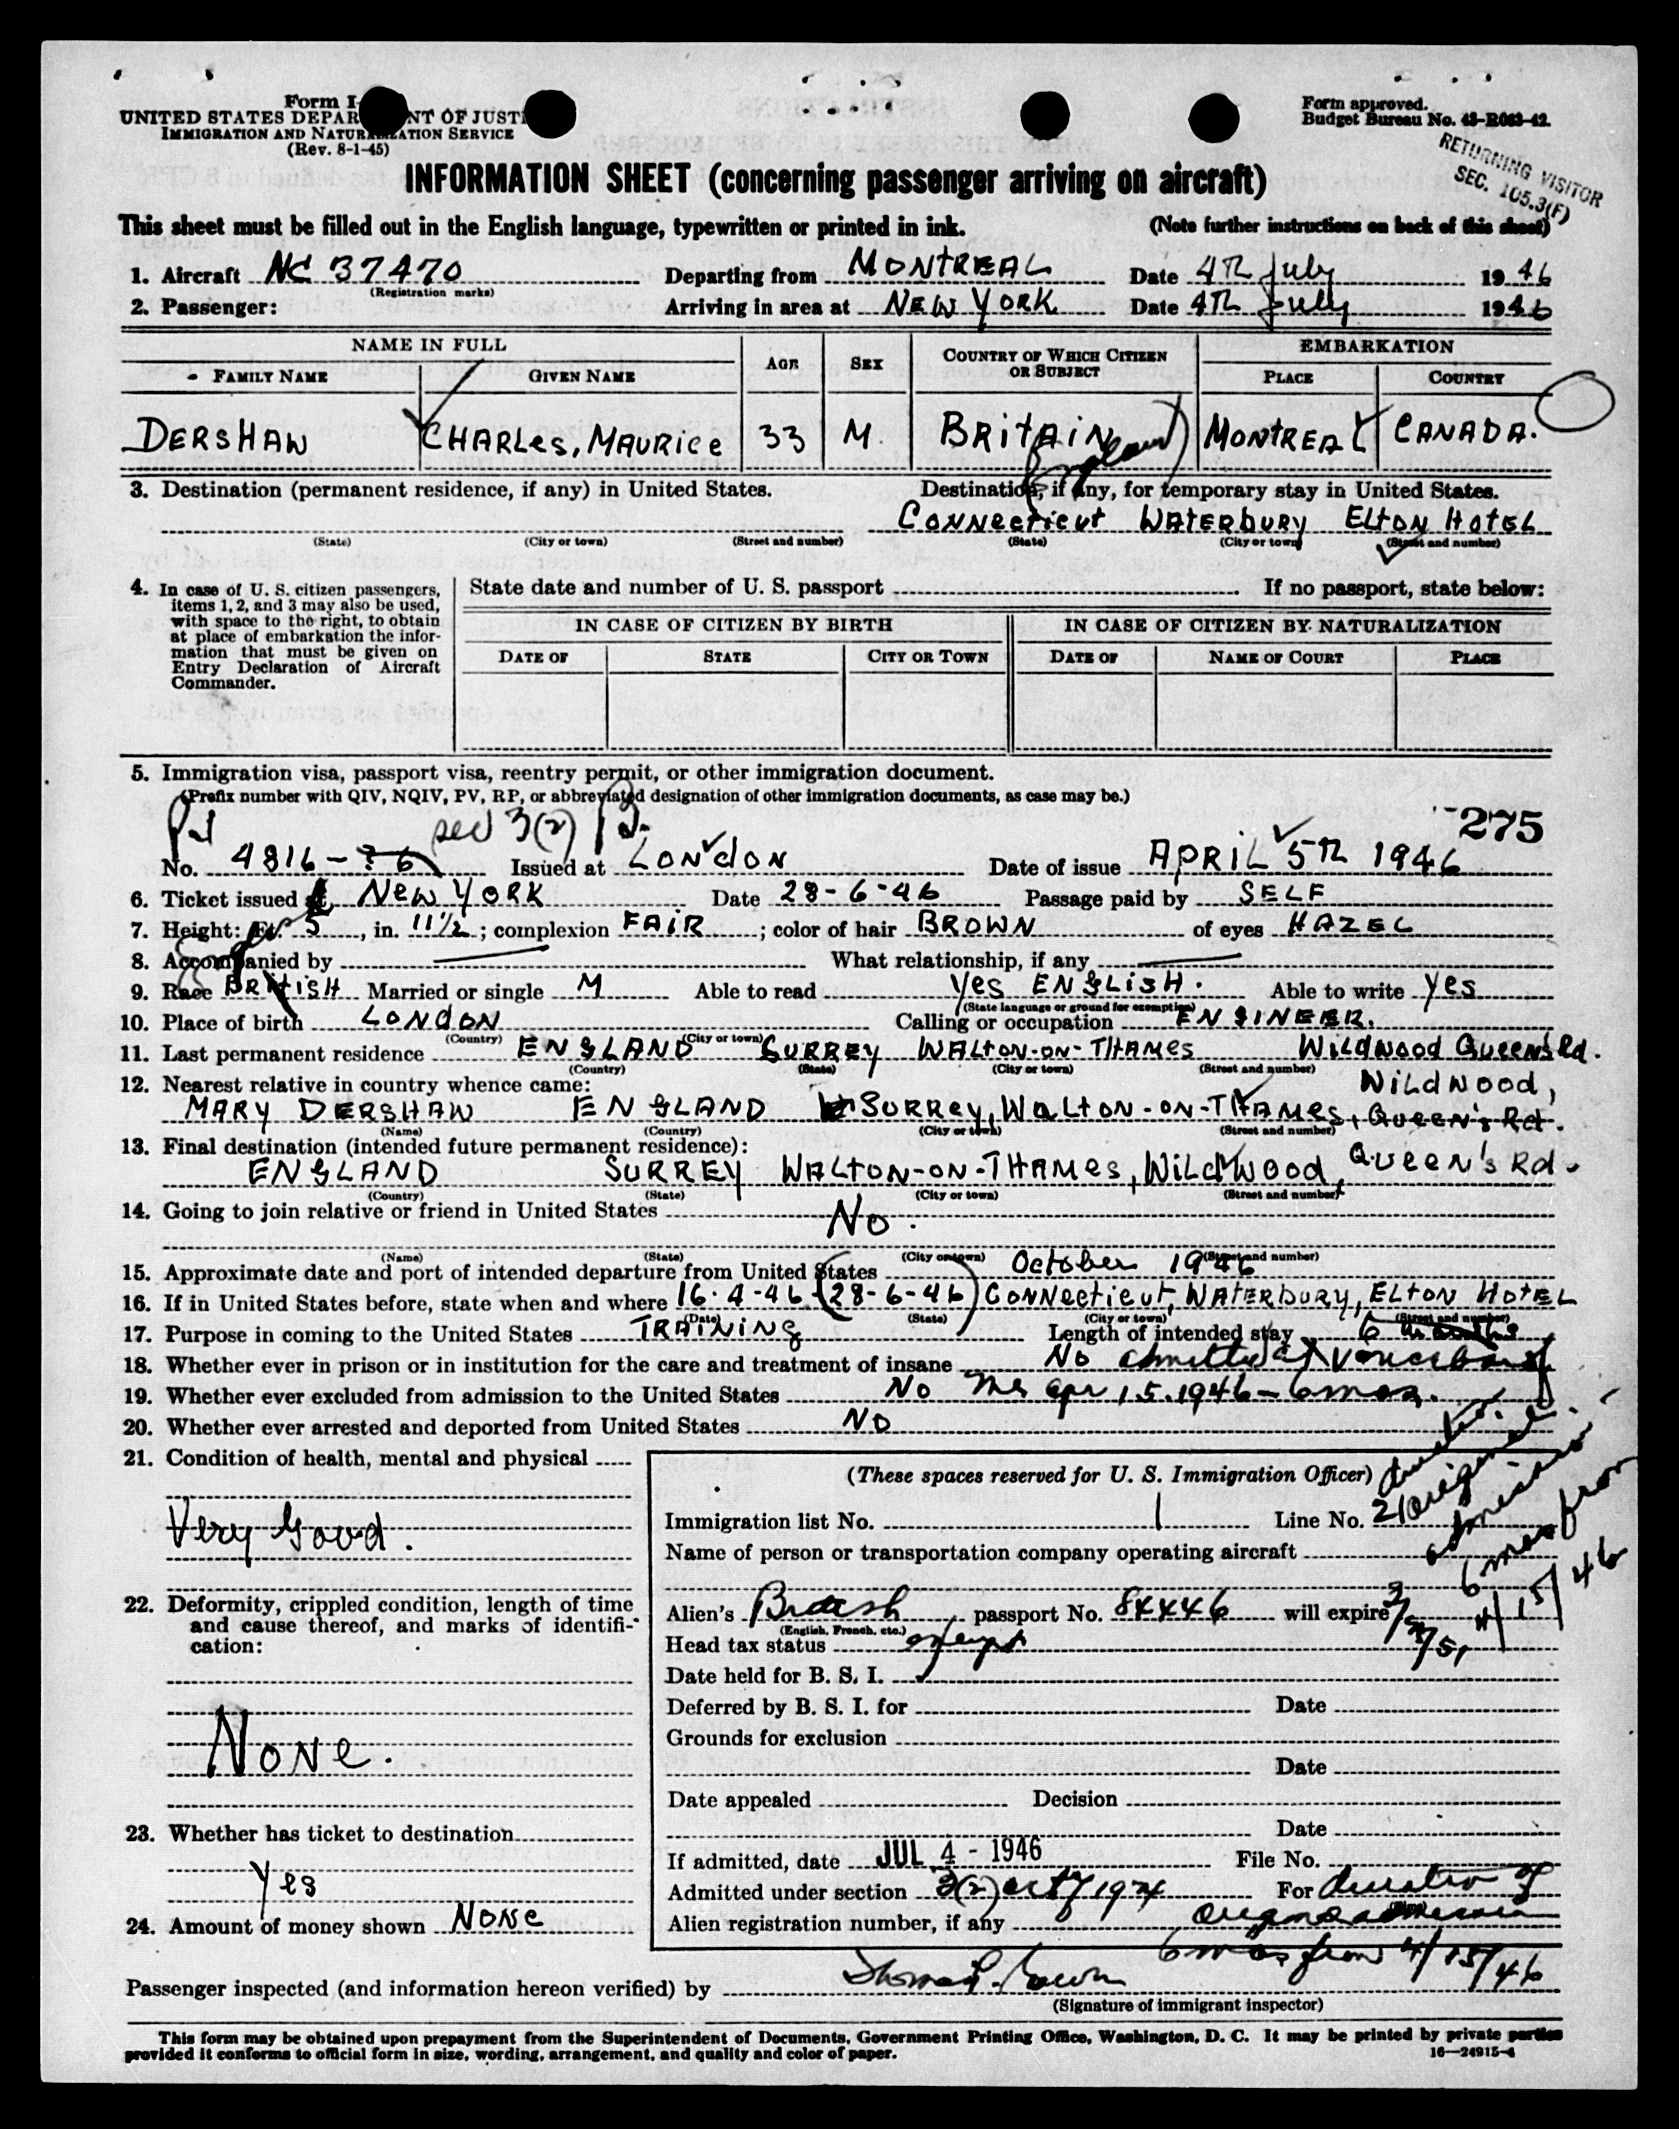 Form I-
UNITED STATES DEPAR NT OF JUSTI
IMMIGRATION AND NATURALIZATION SERVICE
(Rev. 8-1-45)
Form approved.
Budget Bureau No. 43-R083-42.
RETURNING VISITOR
SEC. 105.3(F)
INFORMATION SHEET (concerning passenger arriving on aircraft)
This sheet must be filled out in the English language, typewritten or printed in ink. (Note further instructions on back of this sheet)
1. Aircraft NC 37470 Departing from MONTREAL Date 4th July 1946
(Registration marks)
2. Passenger: Arriving in area at NEW YORK Date 4th July 1946
NAME IN FULL AGE SEX COUNTRY OF WHICH CITIZEN OR SUBJECT EMBARKATION
FAMILY NAME GIVEN NAME PLACE COUNTRY
DERSHAW CHARLES, MAURICE 33 M BRITAIN (England) MONTREAL CANADA.
3. Destination (permanent residence, if any) in United States. Destination, if any, for temporary stay in United States.
CONNECTICUT WATERBURY ELTON HOTEL
(State) (City or town) (Street and number) (State) (City or town) (Street and number)
4. In case of U. S. citizen passengers, items 1, 2, and 3 may also be used, with space to the right, to obtain at place of embarkation the information that must be given on Entry Declaration of Aircraft Commander.
State date and number of U. S. passport If no passport, state below:
IN CASE OF CITIZEN BY BIRTH IN CASE OF CITIZEN BY NATURALIZATION
DATE OF STATE CITY OR TOWN DATE OF NAME OF COURT PLACE
5. Immigration visa, passport visa, reentry permit, or other immigration document.
(Prefix number with QIV, NQIV, PV, RP, or abbreviated designation of other immigration documents, as case may be.)
sec 3(2) 275
No. 4816- Issued at LONDON Date of issue APRIL 5th 1946
6. Ticket issued at NEW YORK Date 28-6-46 Passage paid by SELF
7. Height: Ft. 5, in. 11½; complexion FAIR; color of hair BROWN of eyes HAZEL
8. Accompanied by — What relationship, if any —
9. Race BRITISH Married or single M Able to read Yes ENGLISH. Able to write Yes
(State language or ground for exemption)
10. Place of birth LONDON Calling or occupation ENGINEER.
(Country) (City or town)
11. Last permanent residence ENGLAND SURREY WALTON-ON-THAMES WILDWOOD QUEEN'S Rd.
(Country) (State) (City or town) (Street and number)
12. Nearest relative in country whence came: WILDWOOD,
MARY DERSHAW ENGLAND SURREY, WALTON-ON-THAMES, QUEEN'S Rd.
(Name) (Country) (City or town) (Street and number)
13. Final destination (intended future permanent residence):
ENGLAND SURREY WALTON-ON-THAMES, WILDWOOD, QUEEN'S Rd.
(Country) (State) (City or town) (Street and number)
14. Going to join relative or friend in United States No.
(Name) (State) (City or town) (Street and number)
15. Approximate date and port of intended departure from United States October 1946
16. If in United States before, state when and where 16-4-46 (28-6-46) CONNECTICUT, WATERBURY, ELTON HOTEL
(Date) (State) (City or town) (Street and number)
17. Purpose in coming to the United States TRAINING Length of intended stay 6 months
18. Whether ever in prison or in institution for the care and treatment of insane No admitted at
19. Whether ever excluded from admission to the United States No Apr 15.1946 - 6 mos.
20. Whether ever arrested and deported from United States NO
21. Condition of health, mental and physical
Very Good.
22. Deformity, crippled condition, length of time
and cause thereof, and marks of identifi-
cation:
None.
23. Whether has ticket to destination
Yes
24. Amount of money shown NONE
(These spaces reserved for U. S. Immigration Officer)
duration original admission 6 mos from 4/15/46
Immigration list No. 1 Line No. 2
Name of person or transportation company operating aircraft
Alien's British passport No. 84446 will expire
(English, French, etc.)
Head tax status exempt
Date held for B. S. I.
Deferred by B. S. I. for Date
Grounds for exclusion
Date
Date appealed Decision
Date
If admitted, date JUL 4 - 1946 File No.
Admitted under section 3(2) act of 1924 For duration of
Alien registration number, if any original admission
6 mos from 4/15/46
Passenger inspected (and information hereon verified) by
(Signature of immigrant inspector)
This form may be obtained upon prepayment from the Superintendent of Documents, Government Printing Office, Washington, D. C. It may be printed by private parties
provided it conforms to official form in size, wording, arrangement, and quality and color of paper. 16—24915-4